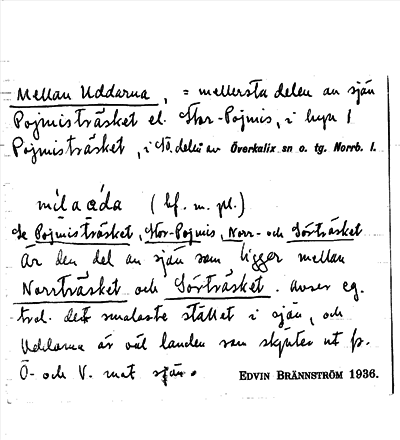 Mellan Uddarna, = mellersta delen av sjön
Pojmisträsket el. Stor-Pojmis, i byn 1
Pojmisträsket, i NÖ. delen av Överkalix sn o. tg. Norrb. l.
(bf. m. pl.)
Se Pojmisträsket, Stor-Pojmis, Norr- och Sörträsket
Är den del av sjön som ligger mellan
Norrträsket och Sörträsket. Avser eg.
trol. det smalaste stället i sjön, och
Uddarna är väl landen som skjuter ut fr.
Ö- och V. mot sjön.
EDVIN BRÄNNSTRÖM 1936.